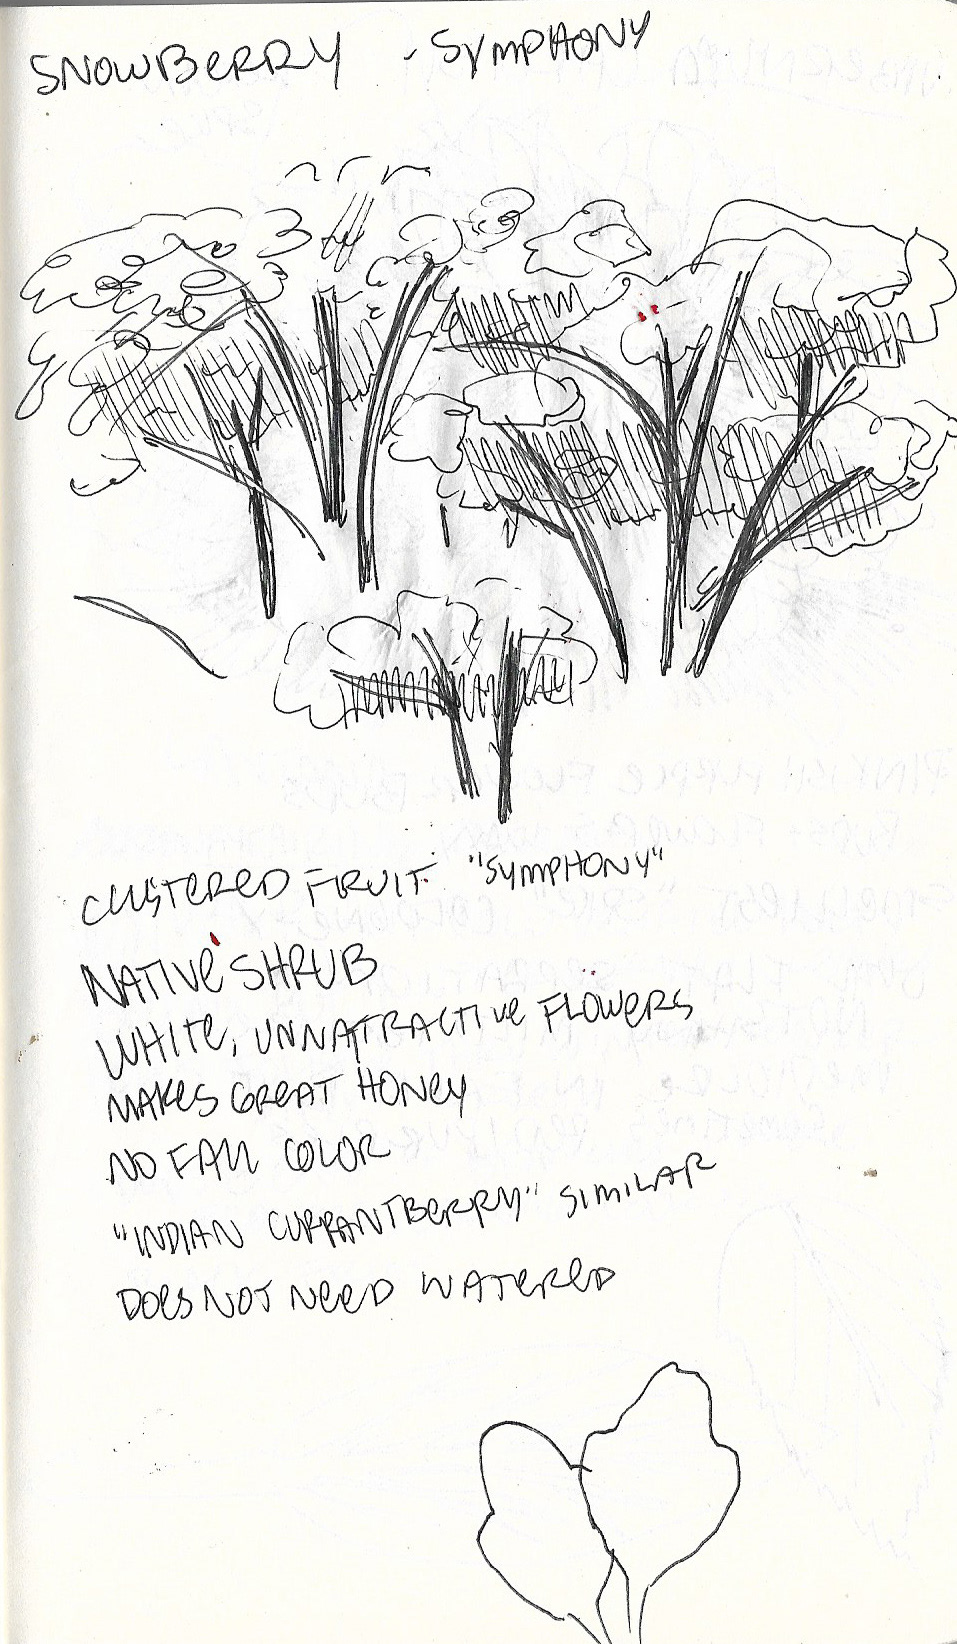 SNOWBERRY - SYMPHONY
CLUSTERED FRUIT. "SYMPHONY"
NATIVE SHRUB
WHITE, UNNATTRACTIVE FLOWERS
MAKES GREAT HONEY
NO FALL COLOR
"INDIAN CURRANTBERRY" SIMILAR
DOES NOT NEED WATERED